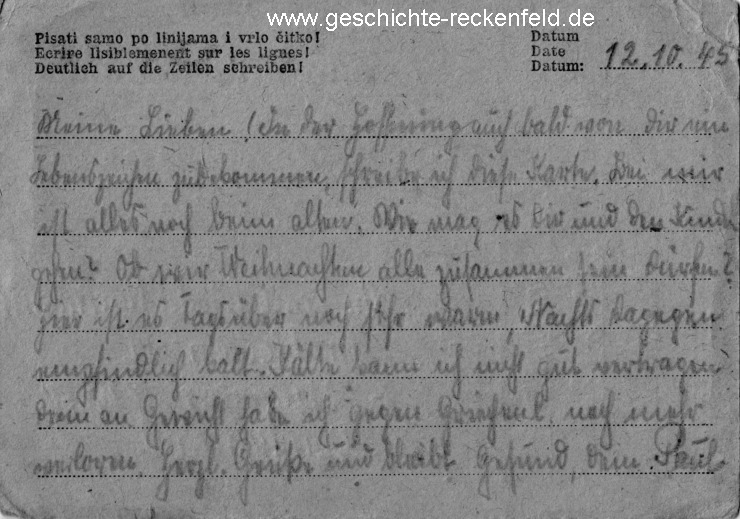 www.geschichte-reckenfeld.de
Pisati samo po linijama i vrlo čitko!
Ecrire lisiblemenent sur les lignes!
Deutlich auf die Zeilen schreiben!
Datum
Date
Datum: 12.10.45
Meine Lieben! In der Hoffnung auch bald von dir ein
Lebenszeichen zu bekommen, schreibe ich diese Karte. Bei mir
ist alles noch beim alten. Wie mag es Dir und den Kindern
gehen? Ob wir Weihnachten alle zusammen sein dürfen?
Hier ist es Tagsüber noch sehr warm, Nachts dagegen
empfindlich kalt. Kälte kann ich nicht gut vertragen
denn an Gewicht habe ich gegen Griechenl. noch mehr
verloren. Herzl. Grüße und bleibt gesund, dein Paul